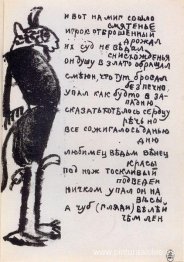 и вот на миг сошло
смятенье
игрок отброшенный
дрожал
их суд не ведал
снисхожденья
он душу в злато обращал
смеюн, что тут бродил
безпечно
упал как будто в за-
падню
сказать хотелось сердцу
речь но
все сожигалось данью
дню
любимец ведьм венец
красы
под нож тоскливый
подведен
ничком упал он на
весы
а чуб белей
чем лен